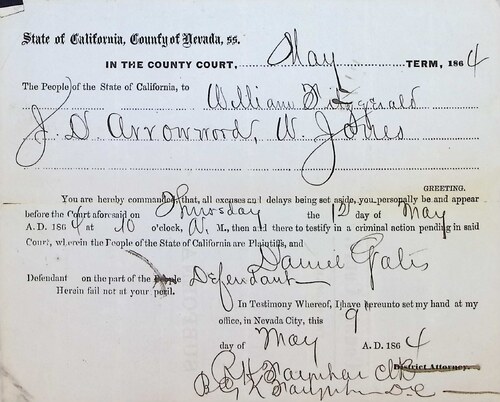 State of California, County of Nevada, ss.
IN THE COUNTY COURT, May TERM, 1864
The People of the State of California, to William Fitzgerald
J. D. Arrowwood, W. Jones
GREETING.
You are hereby commanded, that, all excuses and delays being set aside, you personally be and appear
before the Court aforesaid on Thursday the 12 day of May
A. D. 1864 at 10 o'clock, A. M., then and there to testify in a criminal action pending in said
Court, wherein the People of the State of California are Plaintiffs, and
Daniel Gates
Defendant on the part of the People Defendant
Herein fail not at your peril.
In Testimony Whereof, I have hereunto set my hand at my
office, in Nevada City, this 9
day of May A. D. 1864
District Attorney.
Clk